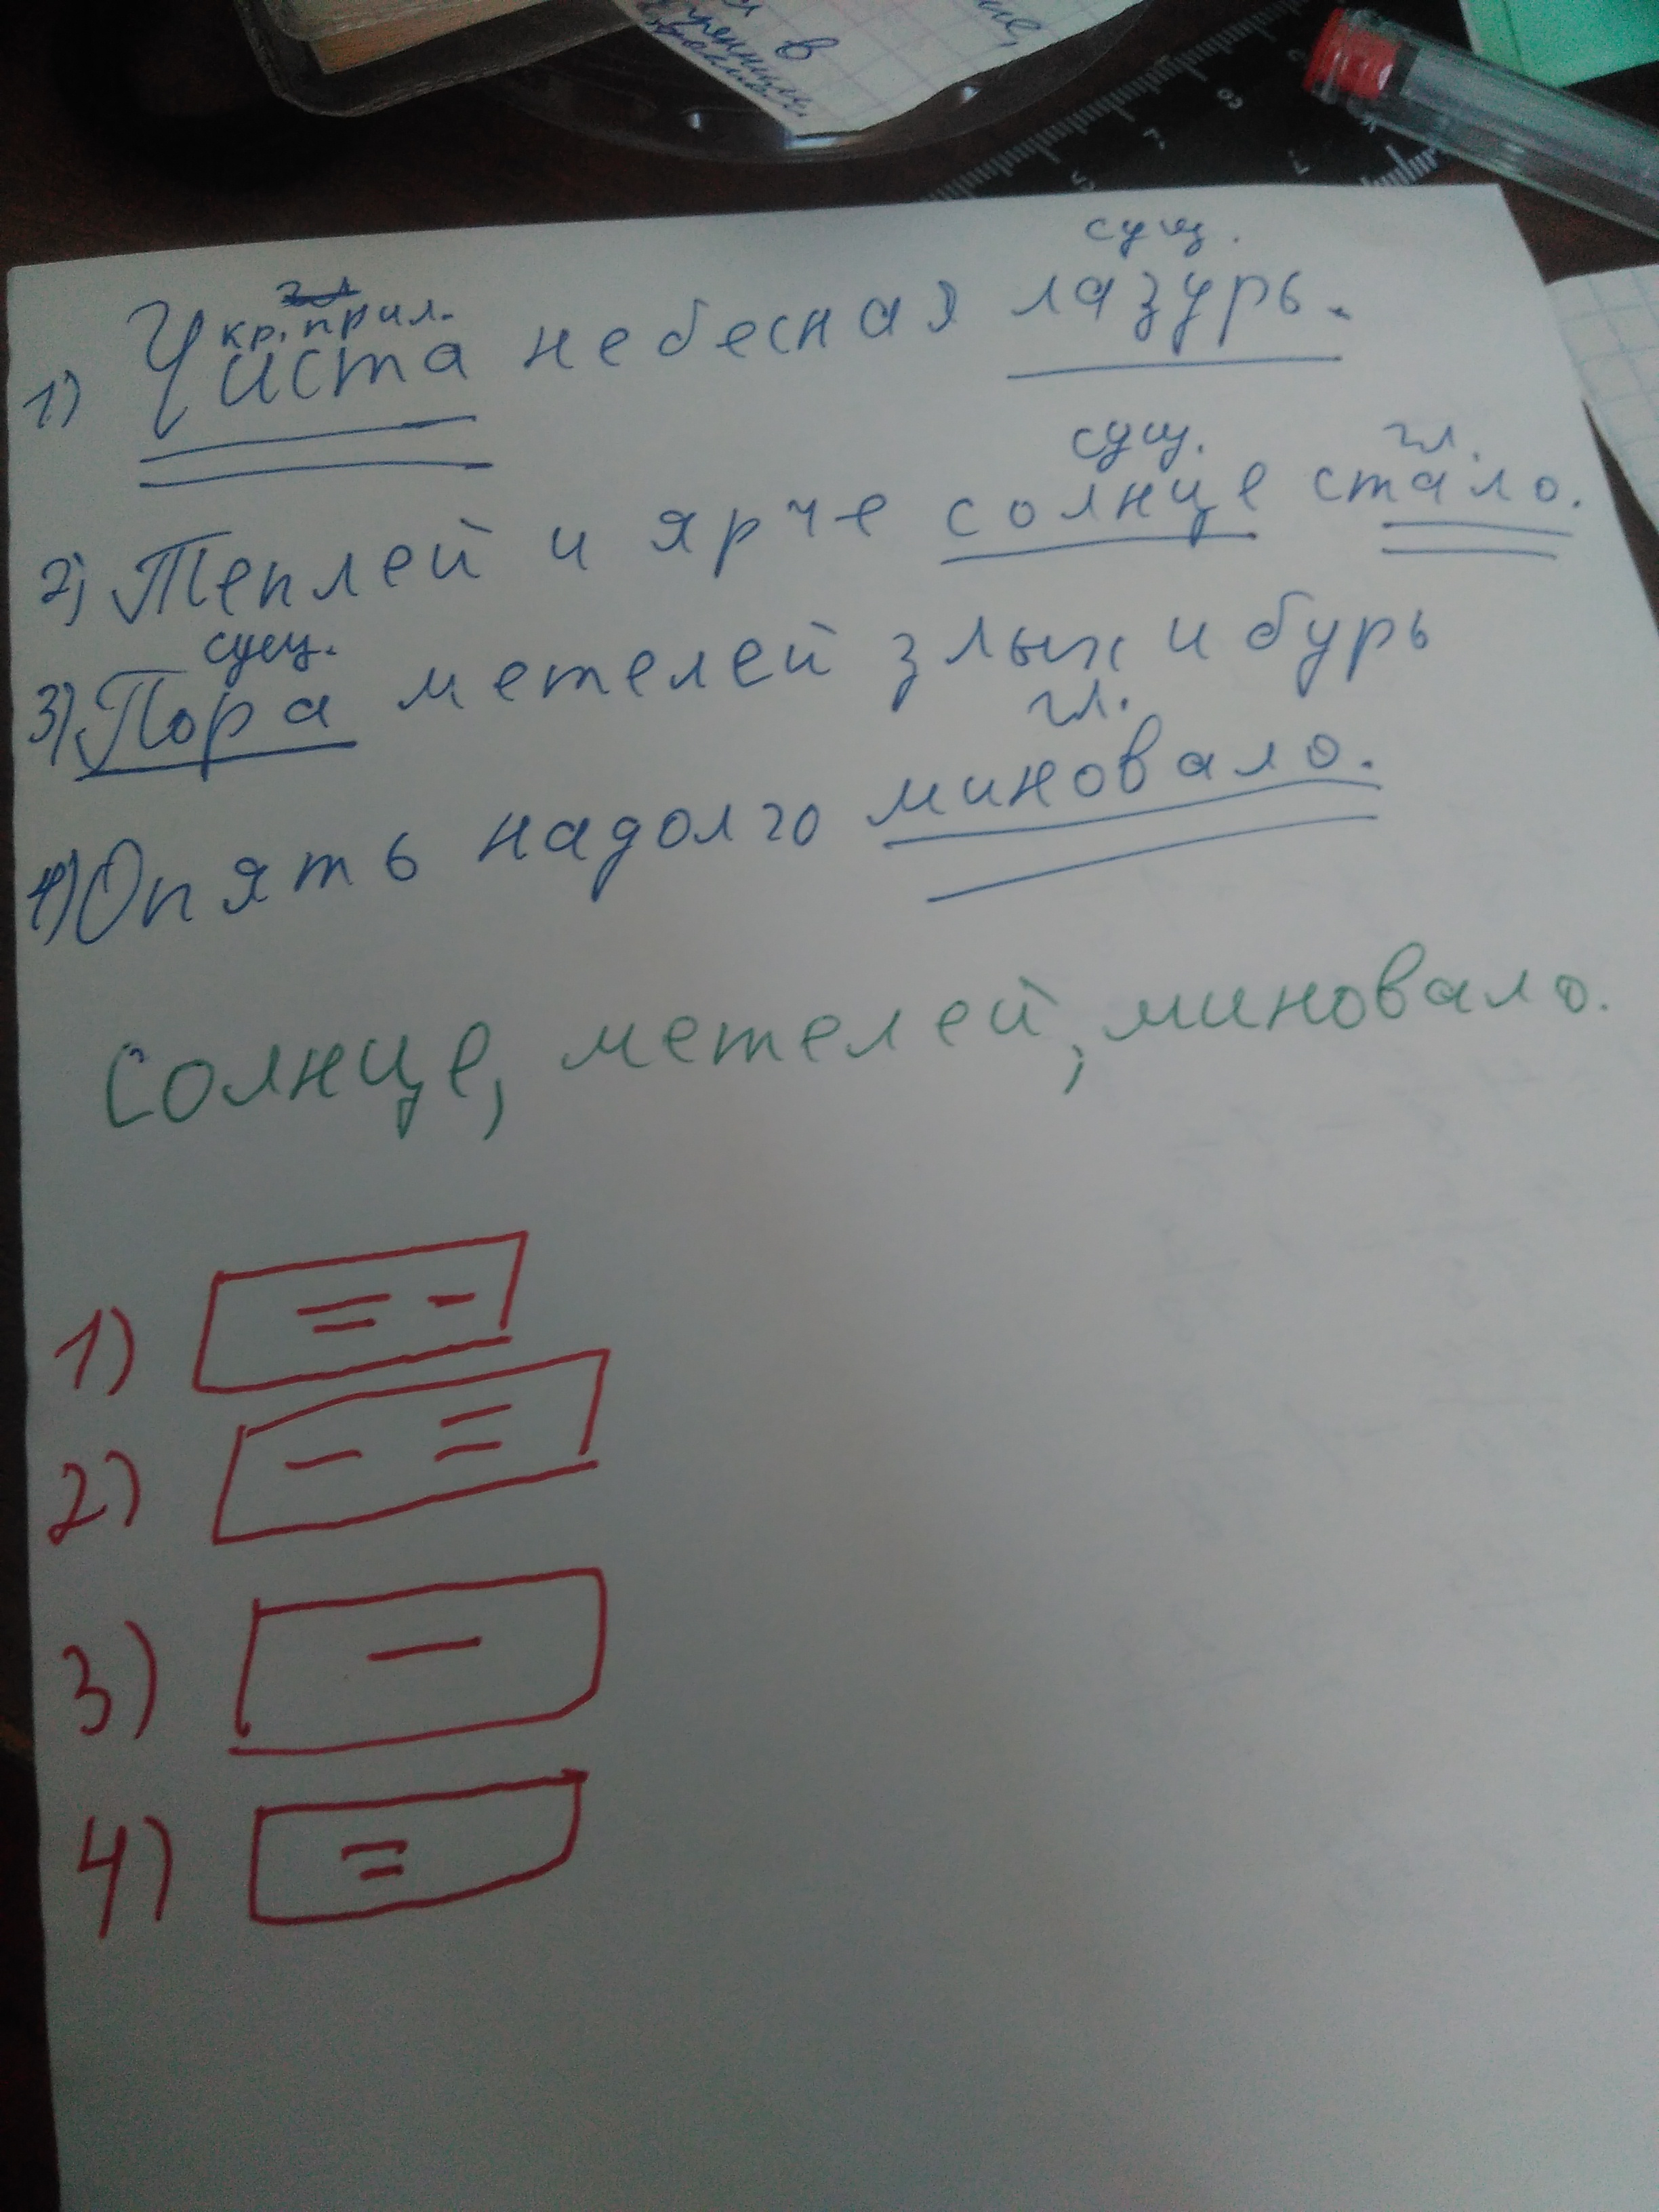 в
сущ.
гл
кр. прил.
1) Чиста небесная лазурь.
сущ. гл.
2) Теплей и ярче солнце стало.
сущ.
3) Пора метелей злых и бурь
гл.
4) Опять надолго миновало.
Солнце, метелей, миновало.
1)
2)
3)
4)